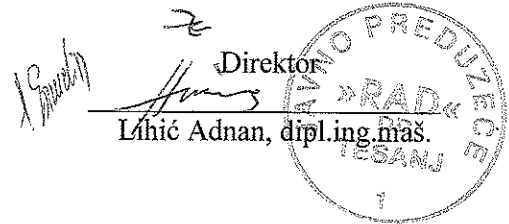 Direktor
Lihić Adnan, dipl.ing.maš.
JAVNO PREDUZEĆE
»RAD«
TEŠANJ
1